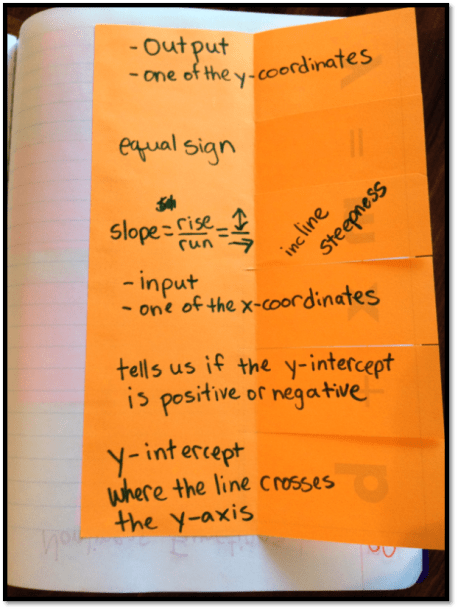 - Output
- one of the y-coordinates
equal sign
slope = rise/run = ↕/→
incline
steepness
- input
- one of the x-coordinates
tells us if the y-intercept
is positive or negative
y-intercept
where the line crosses
the y-axis